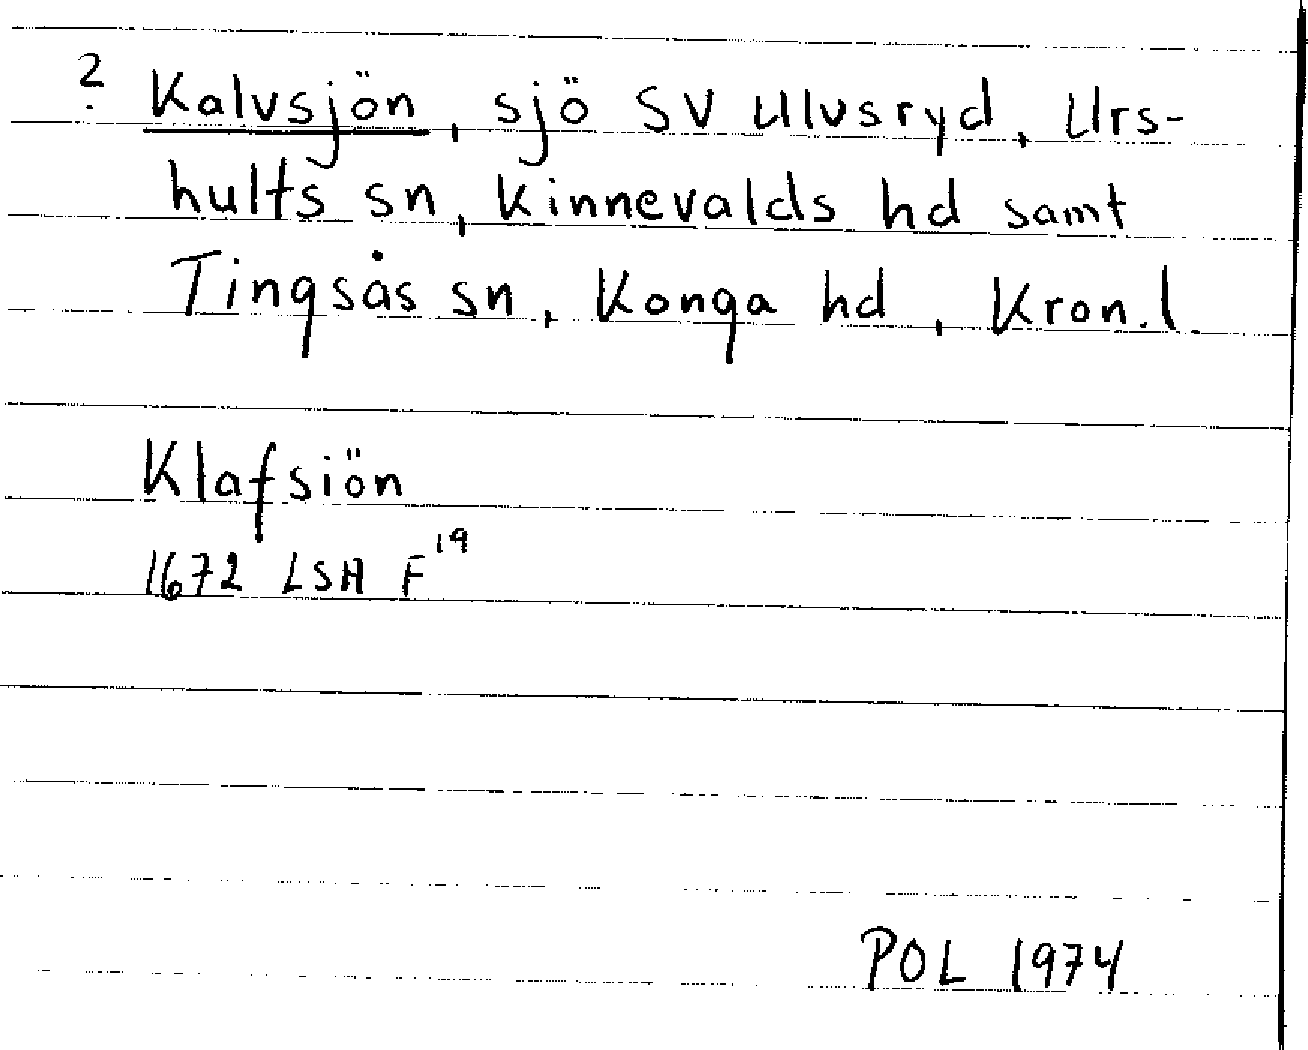 ? Kalvsjön, sjö SV Ulvsryd, Urs-
hults sn, Kinnevalds hd samt
Tingsås sn, Konga hd, Kron.l.
Klafsiön
1672 LSA F19
POL 1974